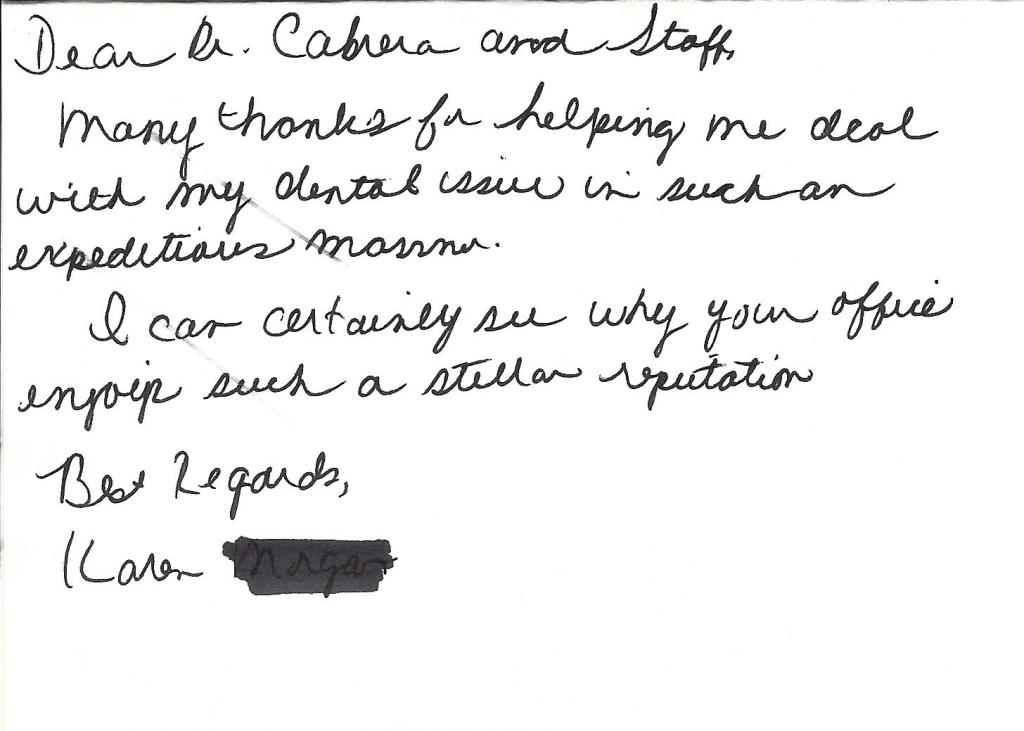 Dear Dr. Cabrera and Staff,
Many thanks for helping me deal
with my dental issue in such an
expeditious manner.
I can certainly see why your office
enjoys such a stellar reputation
Best Regards,
Karen